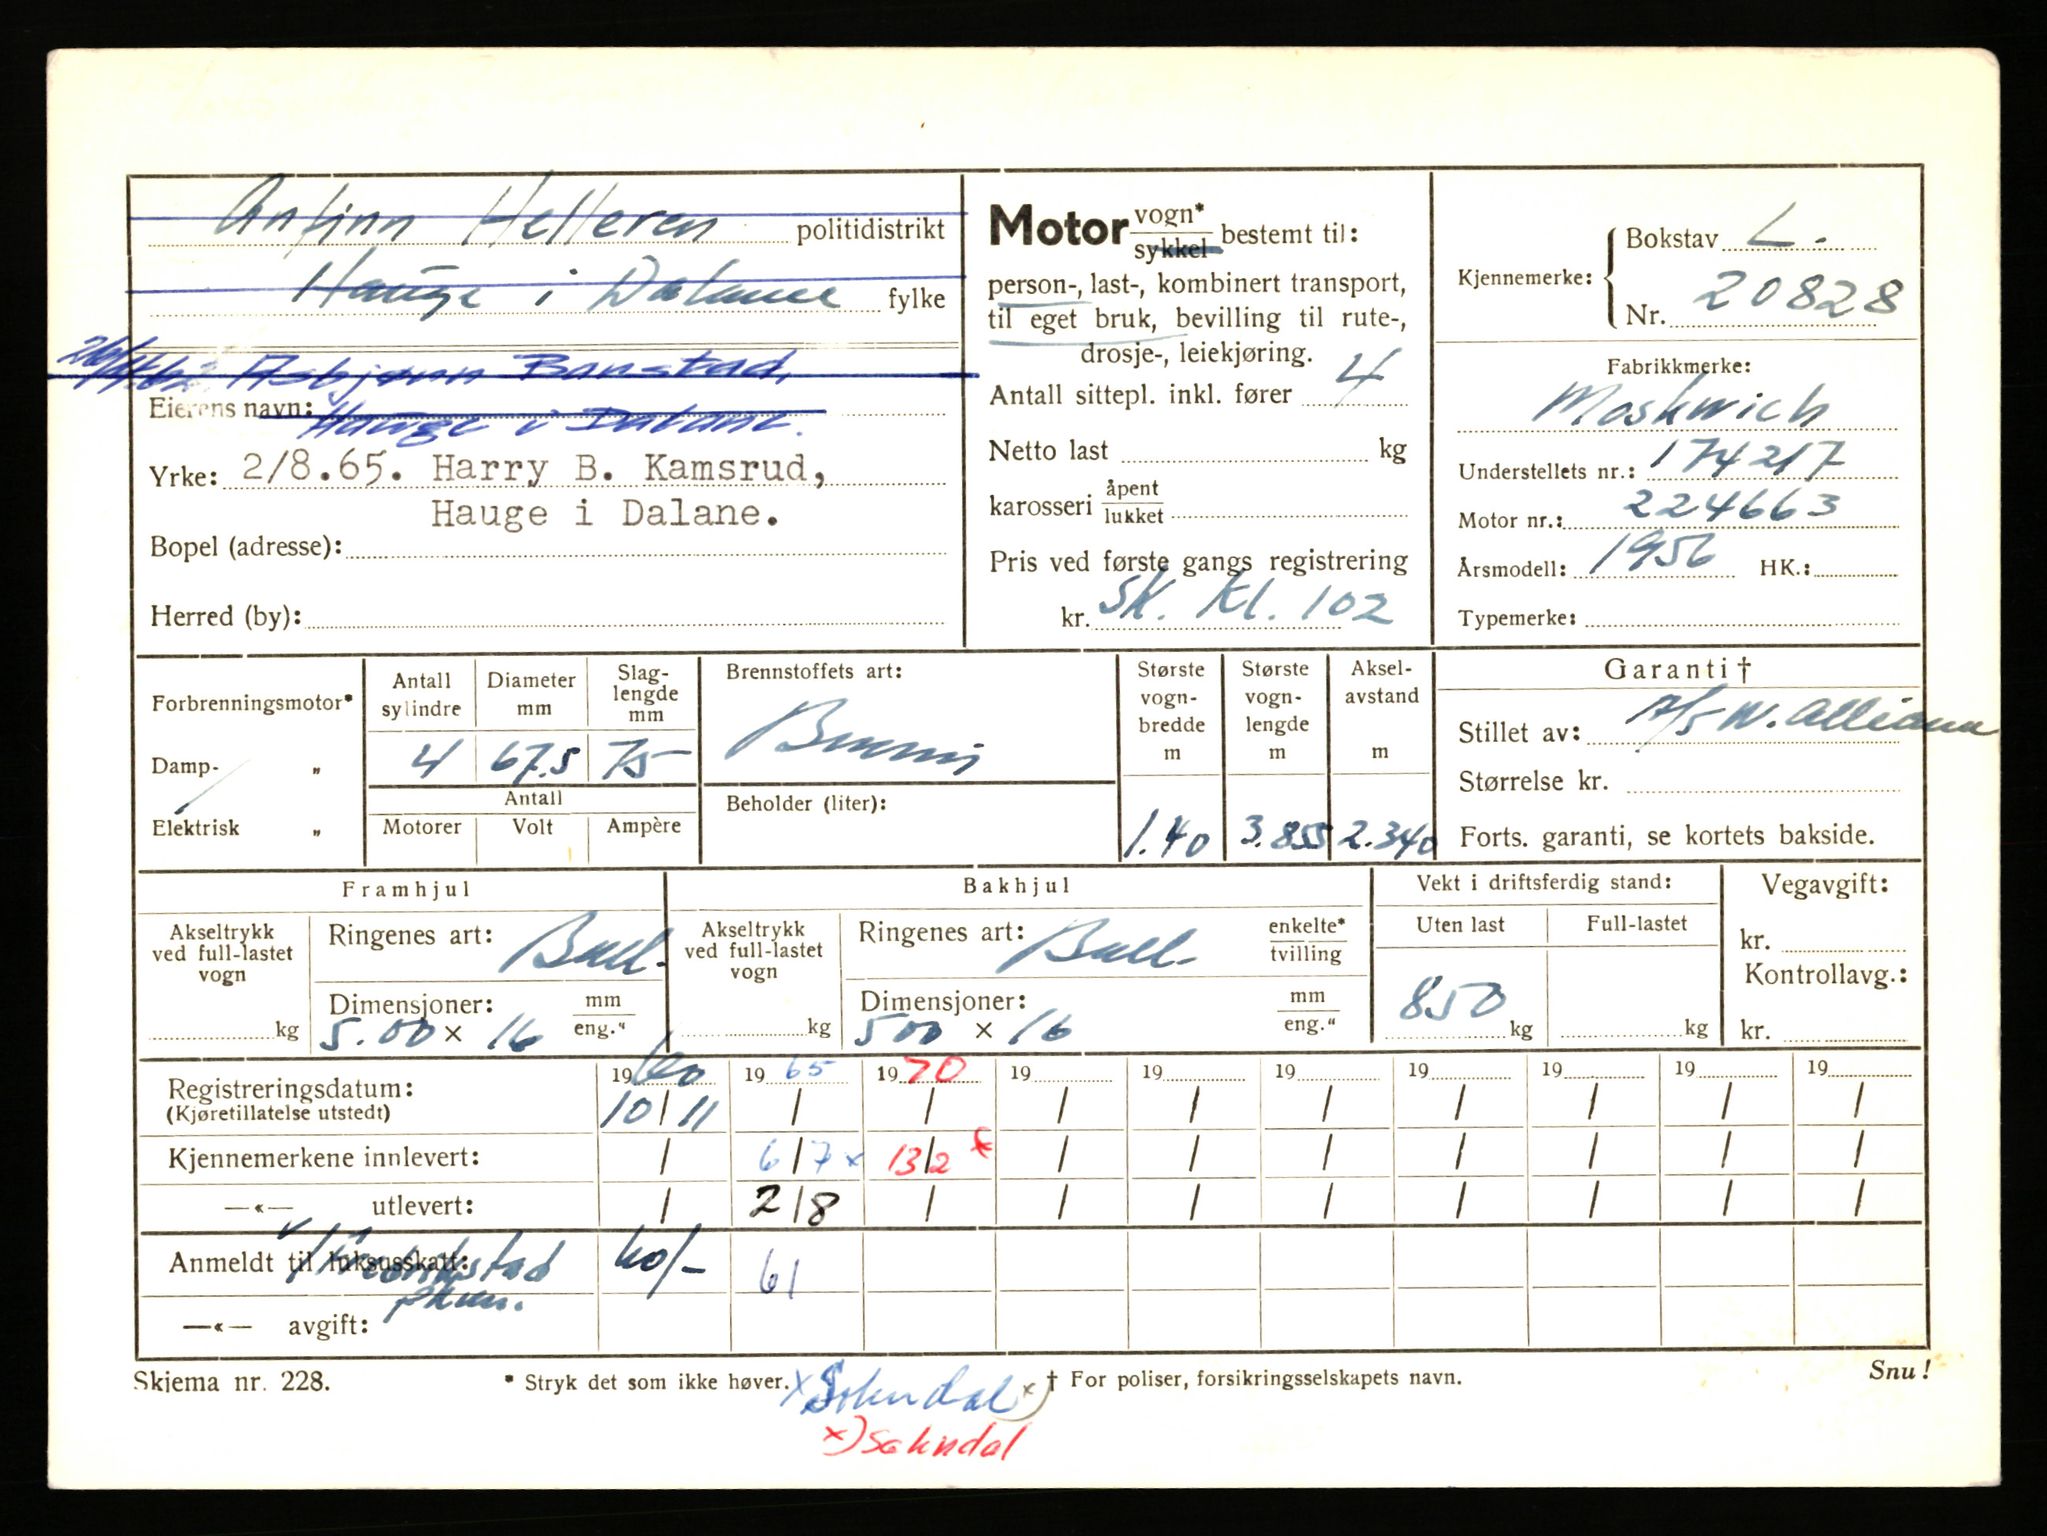 Anfinn Helleren politidistrikt
Hauge i Dalane fylke
Asbjønn Banstad,
Eierens navn: Hauge i Dalane.
Yrke: 2/8.65. Harry B. Kamsrud,
Hauge i Dalane.
Bopel (adresse):
Herred (by):
Motor vogn* / sykkel bestemt til:
person-, last-, kombinert transport,
til eget bruk, bevilling til rute-,
drosje-, leiekjøring.
Antall sittepl. inkl. fører 4
Netto last kg
karosseri åpent / lukket
Pris ved første gangs registrering
kr. SK. Kl. 102
Kjennemerke: Bokstav L.
Nr. 20828
Fabrikkmerke:
Moskwich
Understellets nr.: 174217
Motor nr.: 224663
Årsmodell: 1956 HK.:
Typemerke:
Forbrenningsmotor*
Damp- „
Elektrisk „
Antall sylindre 4
Diameter mm 67.5
Slag-lengde mm 75
Antall
Motorer Volt Ampère
Brennstoffets art:
Bensin
Beholder (liter):
Største vogn-bredde m 1.40
Største vogn-lengde m 3.855
Aksel-avstand m 2.340
Garanti †
Stillet av: A/S N. Alliance
Størrelse kr.
Forts. garanti, se kortets bakside.
Framhjul
Akseltrykk ved full-lastet vogn kg
Ringenes art: Ball-
Dimensjoner: mm / eng."
5.00 × 16
Bakhjul
Akseltrykk ved full-lastet vogn kg
Ringenes art: Ball- enkelte* / tvilling
Dimensjoner: mm / eng."
500 × 16
Vekt i driftsferdig stand:
Uten last Full-lastet
850 kg kg
Vegavgift:
kr.
Kontrollavg.:
kr.
19 60 19 65 19 70 19 19 19 19 19 19 19
Registreringsdatum: 10/11 / / / / / / / / /
(Kjøretillatelse utstedt)
Kjennemerkene innlevert: / 6/7 x 13/2 x / / / / / / /
—«— utlevert: / 2/8 / / / / / / / /
Anmeldt til luksusskatt: 60/- 61
v/Fredrikstad
—«— avgift:
Skjema nr. 228.
* Stryk det som ikke høver.
† For poliser, forsikringsselskapets navn.
Snu!
x Sokndal x)
x) Sokndal